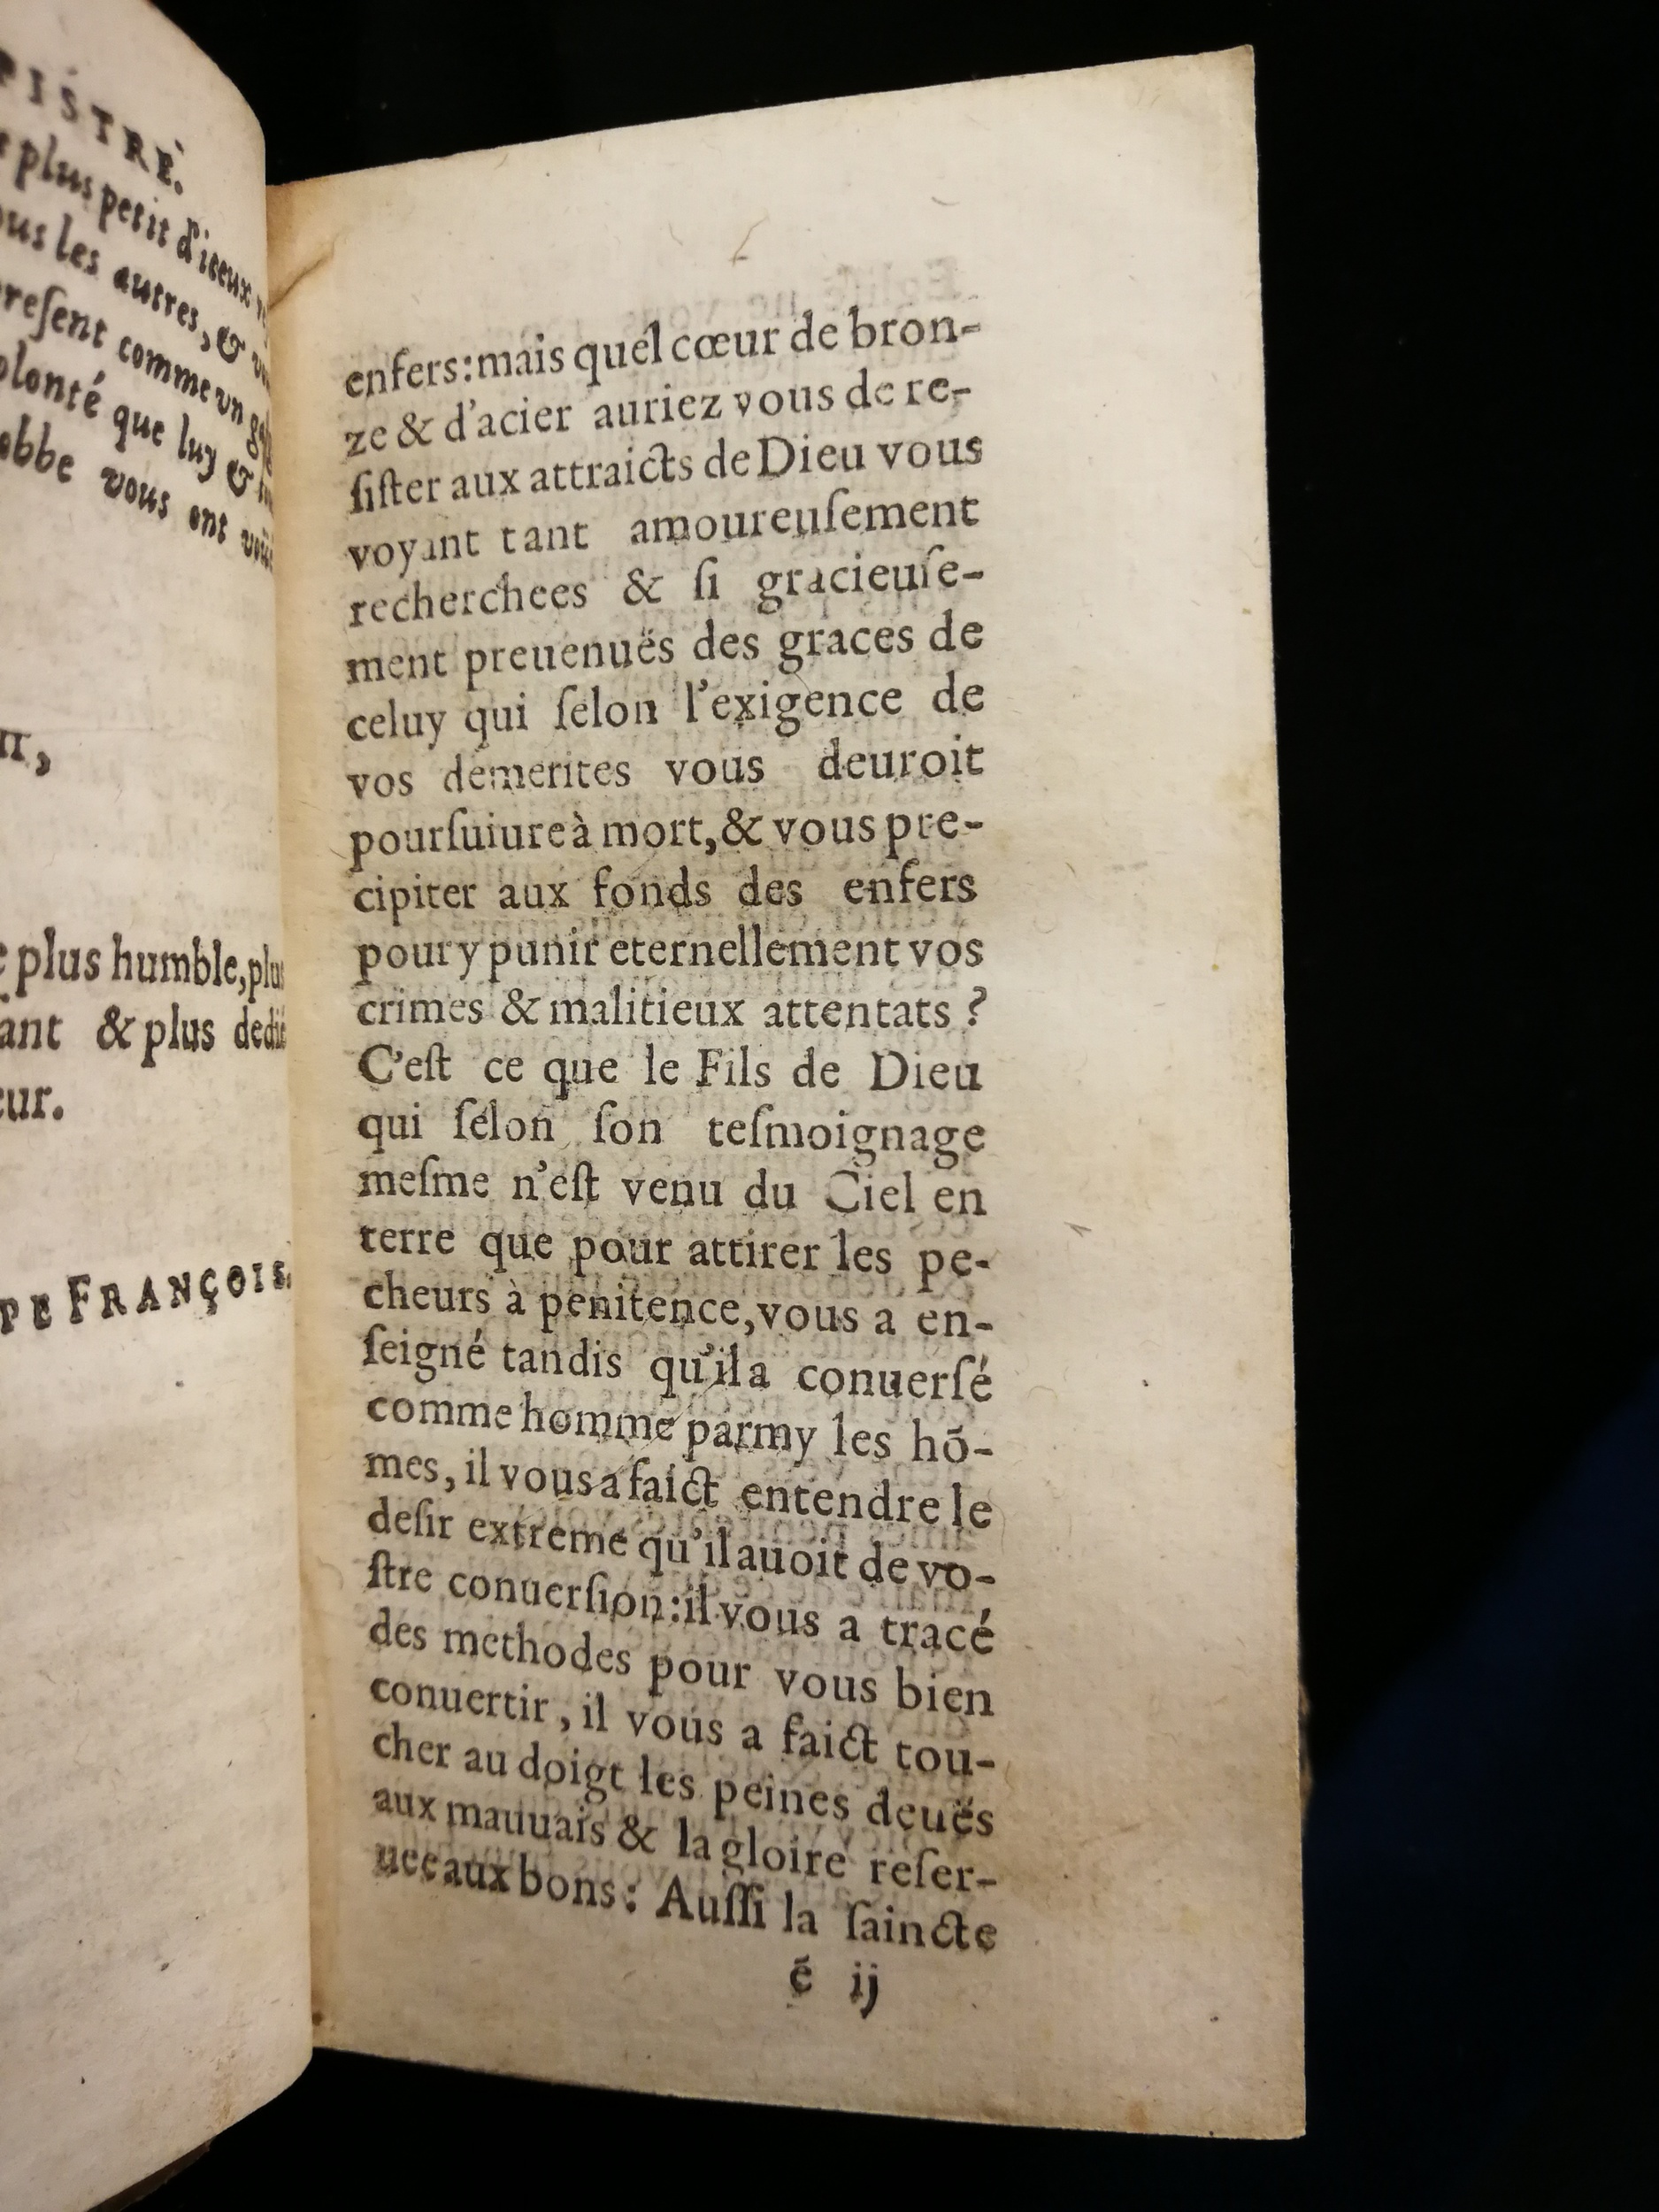 PISTRE.
plus petit d'iceux
ous les autres, &
present comme vn
olonté que luy &
abbe vous ont
plus humble, plus
ant & plus dedié
eur.
PE FRANÇOIS.
enfers: mais quel cœur de bron-
ze & d'acier auriez vous de re-
ſiſter aux attraicts de Dieu vous
voyant tant amoureuſement
recherchees & ſi gracieuſe-
ment preuenuës des graces de
celuy qui ſelon l'exigence de
vos demerites vous deuroit
pourſuiure à mort, & vous pre-
cipiter aux fonds des enfers
pour y punir eternellement vos
crimes & malitieux attentats ?
C'eſt ce que le Fils de Dieu
qui ſelon ſon teſmoignage
meſme n'eſt venu du Ciel en
terre que pour attirer les pe-
cheurs à penitence, vous a en-
ſeigné tandis qu'il a conuerſé
comme homme parmy les hō-
mes, il vous a faict entendre le
deſir extreme qu'il auoit de vo-
ſtre conuerſion: il vous a tracé
des methodes pour vous bien
conuertir, il vous a faict tou-
cher au doigt les peines deuës
aux mauuais & la gloire reſer-
uee aux bons: Auſſi la ſaincte
é ij